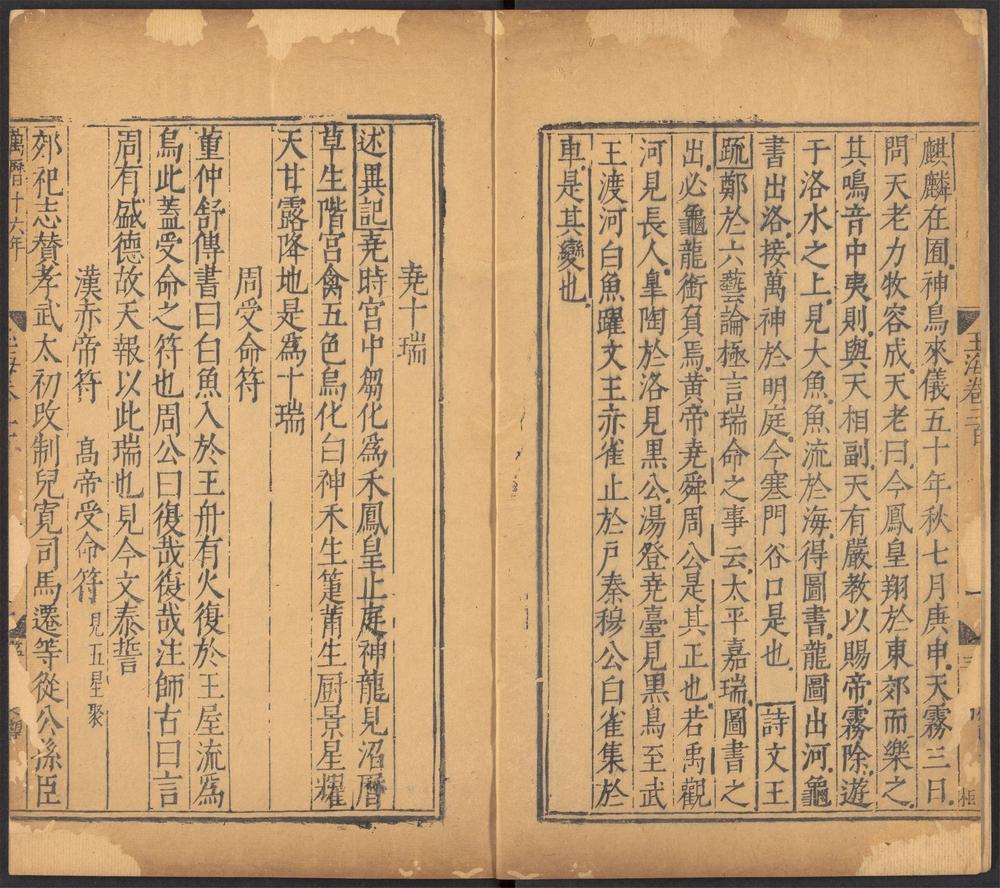 玉海卷二百
麒麟在囿神鳥來儀五十年秋七月庚申天霧三日
問天老力牧容成天老曰今鳳皇翔於東郊而樂之
其鳴音中夷則與天相副天有嚴教以賜帝霧除遊
于洛水之上見大魚魚流於海得圖書龍圖出河龜
書出洛接萬神於明庭今寒門谷口是也 詩文王
䟽鄭於六藝論極言瑞命之事云太平嘉瑞圖書之
出必龜龍銜負焉黃帝堯舜周公是其正也若禹觀
河見長人皐陶於洛見黒公湯登堯臺見黒鳥至武
王渡河白魚躍文王赤雀止於戸秦穆公白雀集於
車是其變也
堯十瑞
述異記堯時宮中芻化爲禾鳳皇止庭神龍見沼曆
草生階宮禽五色烏化白神禾生箑莆生厨景星耀
天甘露降地是爲十瑞
周受命符
董仲舒傳書曰白魚入於王舟有火復於王屋流爲
烏此蓋受命之符也周公曰復哉復哉注師古曰言
周有盛德故天報以此瑞也見今文泰誓
漢赤帝符 髙帝受命符 見五星聚
郊祀志贊孝武太初改制兒寛司馬遷等從公孫臣
萬曆十六年